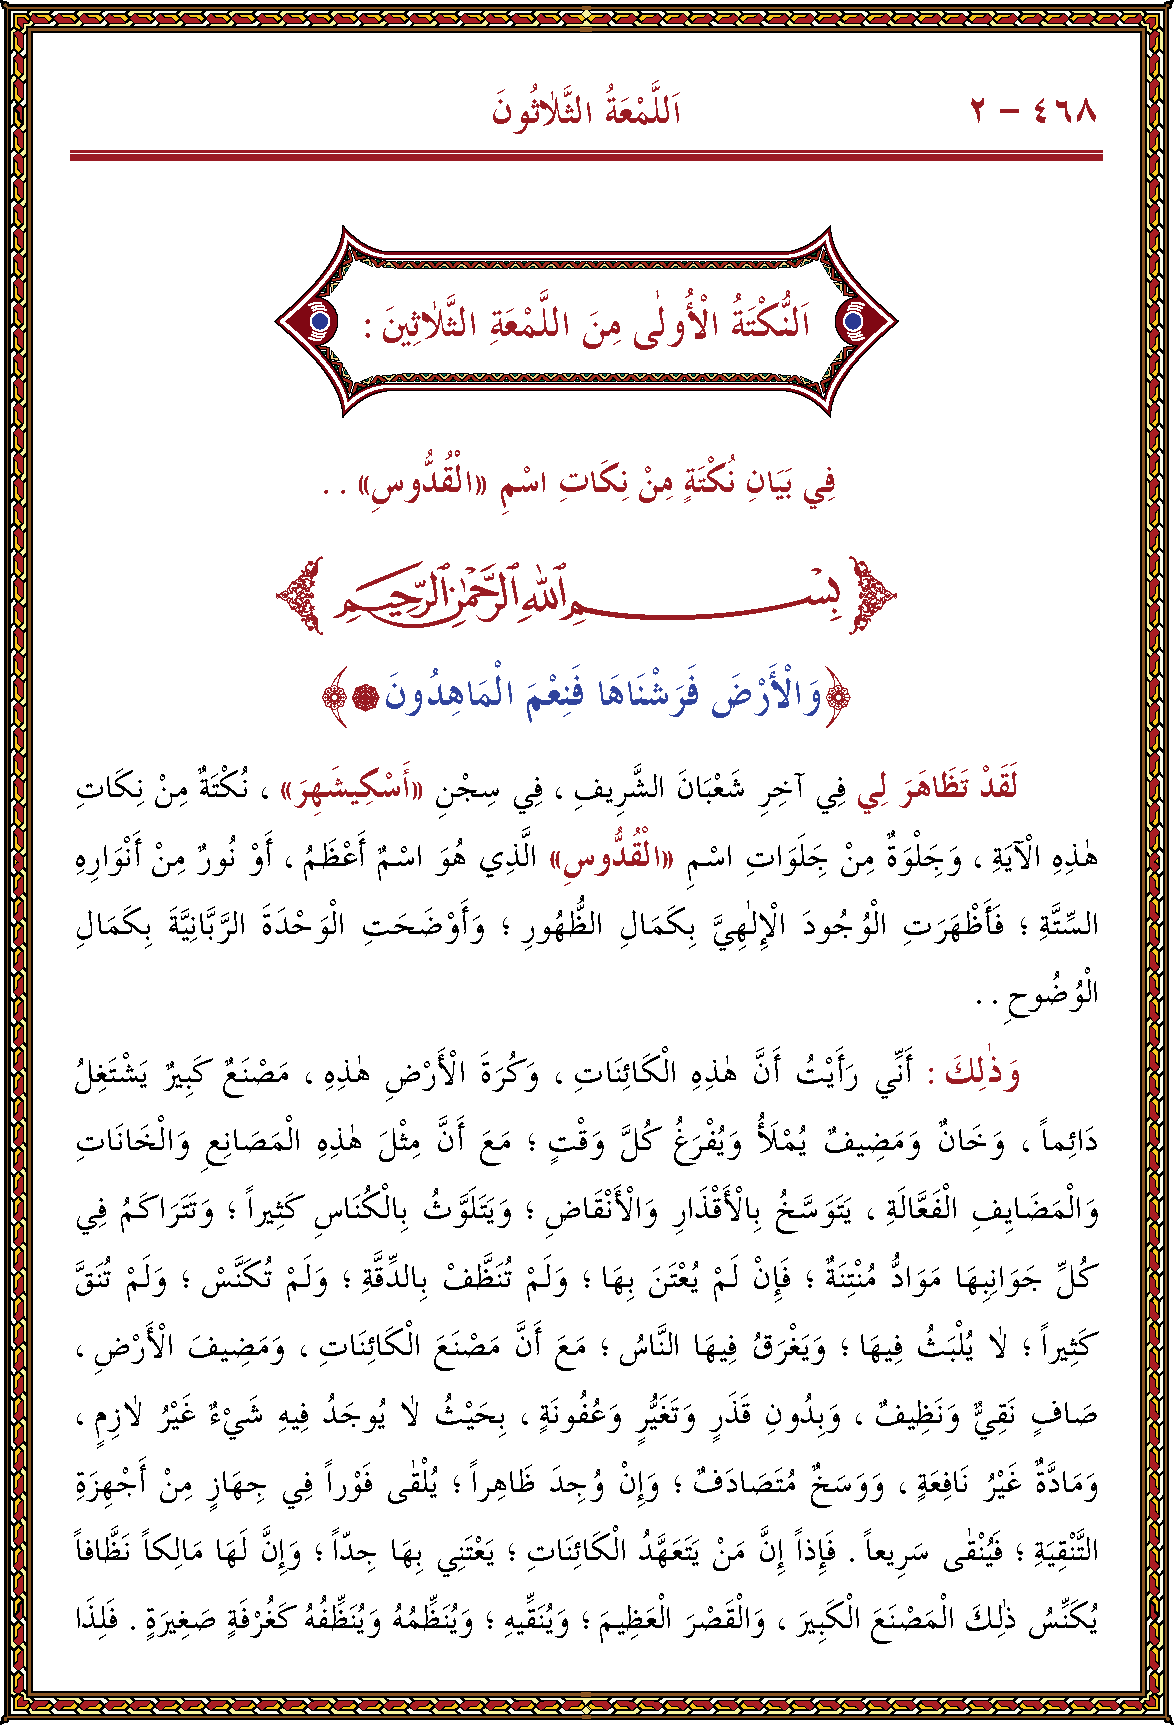 ٤٦٨ – ٢
اَللَّمْعَةُ الثَّلَاثُونَ
اَلنُّكْتَةُ الْأُولٰى مِنَ اللَّمْعَةِ الثَّلَاثِينَ :
فِي بَيَانِ نُكْتَةٍ مِنْ نِكَاتِ اسْمِ «الْقُدُّوسِ» . .
بِسْمِ ٱللّٰهِ ٱلرَّحْمٰنِ ٱلرَّحِيمِ
﴿وَالْأَرْضَ فَرَشْنَاهَا فَنِعْمَ الْمَاهِدُونَ﴾
لَقَدْ تَظَاهَرَ لِي فِي آخِرِ شَعْبَانَ الشَّرِيفِ ، فِي سِجْنِ «أَسْكِيشَهِرَ» ، نُكْتَةٌ مِنْ نِكَاتِ
هٰذِهِ الْآيَةِ ، وَجِلْوَةٌ مِنْ جِلَوَاتِ اسْمِ «الْقُدُّوسِ» الَّذِي هُوَ اسْمٌ أَعْظَمُ ، أَوْ نُورٌ مِنْ أَنْوَارِهِ
السِّتَّةِ ؛ فَأَظْهَرَتِ الْوُجُودَ الْإِلٰهِيَّ بِكَمَالِ الظُّهُورِ ؛ وَأَوْضَحَتِ الْوَحْدَةَ الرَّبَّانِيَّةَ بِكَمَالِ
الْوُضُوحِ . .
وَذٰلِكَ : أَنِّي رَأَيْتُ أَنَّ هٰذِهِ الْكَائِنَاتِ ، وَكُرَةَ الْأَرْضِ هٰذِهِ ، مَصْنَعٌ كَبِيرٌ يَشْتَغِلُ
دَائِماً ، وَخَانٌ وَمَضِيفٌ يُمْلَأُ وَيُفْرَغُ كُلَّ وَقْتٍ ؛ مَعَ أَنَّ مِثْلَ هٰذِهِ الْمَصَانِعِ وَالْخَانَاتِ
وَالْمَضَايِفِ الْفَعَّالَةِ ، يَتَوَسَّخُ بِالْأَقْذَارِ وَالْأَنْقَاضِ ؛ وَيَتَلَوَّثُ بِالْكُنَاسِ كَثِيراً ؛ وَتَتَرَاكَمُ فِي
كُلِّ جَوَانِبِهَا مَوَادُّ مُنْتِنَةٌ ؛ فَإِنْ لَمْ يُعْتَنَ بِهَا ؛ وَلَمْ تُنَظَّفْ بِالدِّقَّةِ ؛ وَلَمْ تُكَنَّسْ ؛ وَلَمْ تُنَقَّ
كَثِيراً ؛ لَا يُلْبَثُ فِيهَا ؛ وَيَغْرَقُ فِيهَا النَّاسُ ؛ مَعَ أَنَّ مَصْنَعَ الْكَائِنَاتِ ، وَمَضِيفَ الْأَرْضِ ،
صَافٍ نَقِيٌّ وَنَظِيفٌ ، وَبِدُونِ قَذَرٍ وَتَغَيُّرٍ وَعُفُونَةٍ ، بِحَيْثُ لَا يُوجَدُ فِيهِ شَيْءٌ غَيْرُ لَازِمٍ ،
وَمَادَّةٌ غَيْرُ نَافِعَةٍ ، وَوَسَخٌ مُتَصَادَفٌ ؛ وَإِنْ وُجِدَ ظَاهِراً ؛ يُلْقٰى فَوْراً فِي جِهَازٍ مِنْ أَجْهِزَةِ
التَّنْقِيَةِ ؛ فَيُنْقٰى سَرِيعاً . فَإِذاً إِنَّ مَنْ يَتَعَهَّدُ الْكَائِنَاتِ ؛ يَعْتَنِي بِهَا جِدّاً ؛ وَإِنَّ لَهَا مَالِكاً نَظَّافاً
يُكَنِّسُ ذٰلِكَ الْمَصْنَعَ الْكَبِيرَ ، وَالْقَصْرَ الْعَظِيمَ ؛ وَيُنَقِّيهِ ؛ وَيُنَظِّمُهُ وَيُنَظِّفُهُ كَغُرْفَةٍ صَغِيرَةٍ . فَلِذَا